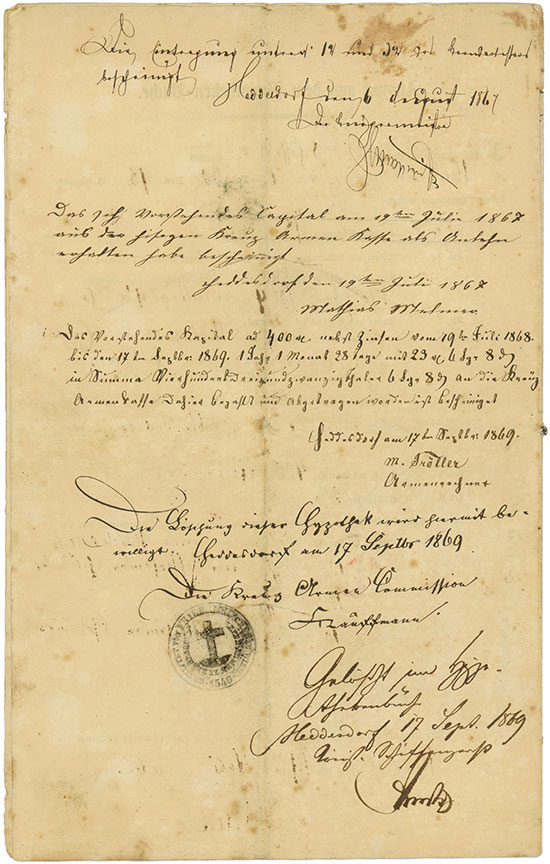 Die Eintragung unterm 12 und 32 des
bescheinigt Heddesdorf den 6 August 1867
Der Bürgermeister
Das ich Vorstehendes Capital am 19ten Julie 1867
aus der hisigen Kreuz Armen Kasse als Anlehn
erhalten habe bescheinigt
Heddesdorf den 19ten Juli 1867
Mathias Melmer
Das Vorstehendes Kapital ad 400 nebst Zinsen vom 19ten Juli 1868.
bis den 17ten Septbr 1869. 1 Jahr 1 Monat 28 tage mit 23 6 Sgr 8 d
in Summa Vierhundertdreiundzwanzigthaler 6 Sgr 8 d an die Kreuz
Armenkasse dahier bezahlt und abgetragen worden ist bescheiniget
Heddesdorf am 17ten Septbr 1869.
M. Tröller
Armenrechner
Die Löschung dieser Hypothek wird hiermit be-
willigt. Heddesdorf am 17 Septbr 1869
Die Kreuz Armen Commission
Kauffmann.
Gelöscht im Hypo-
thekenbuch
Heddesdorf 17 Sept. 1869
1540